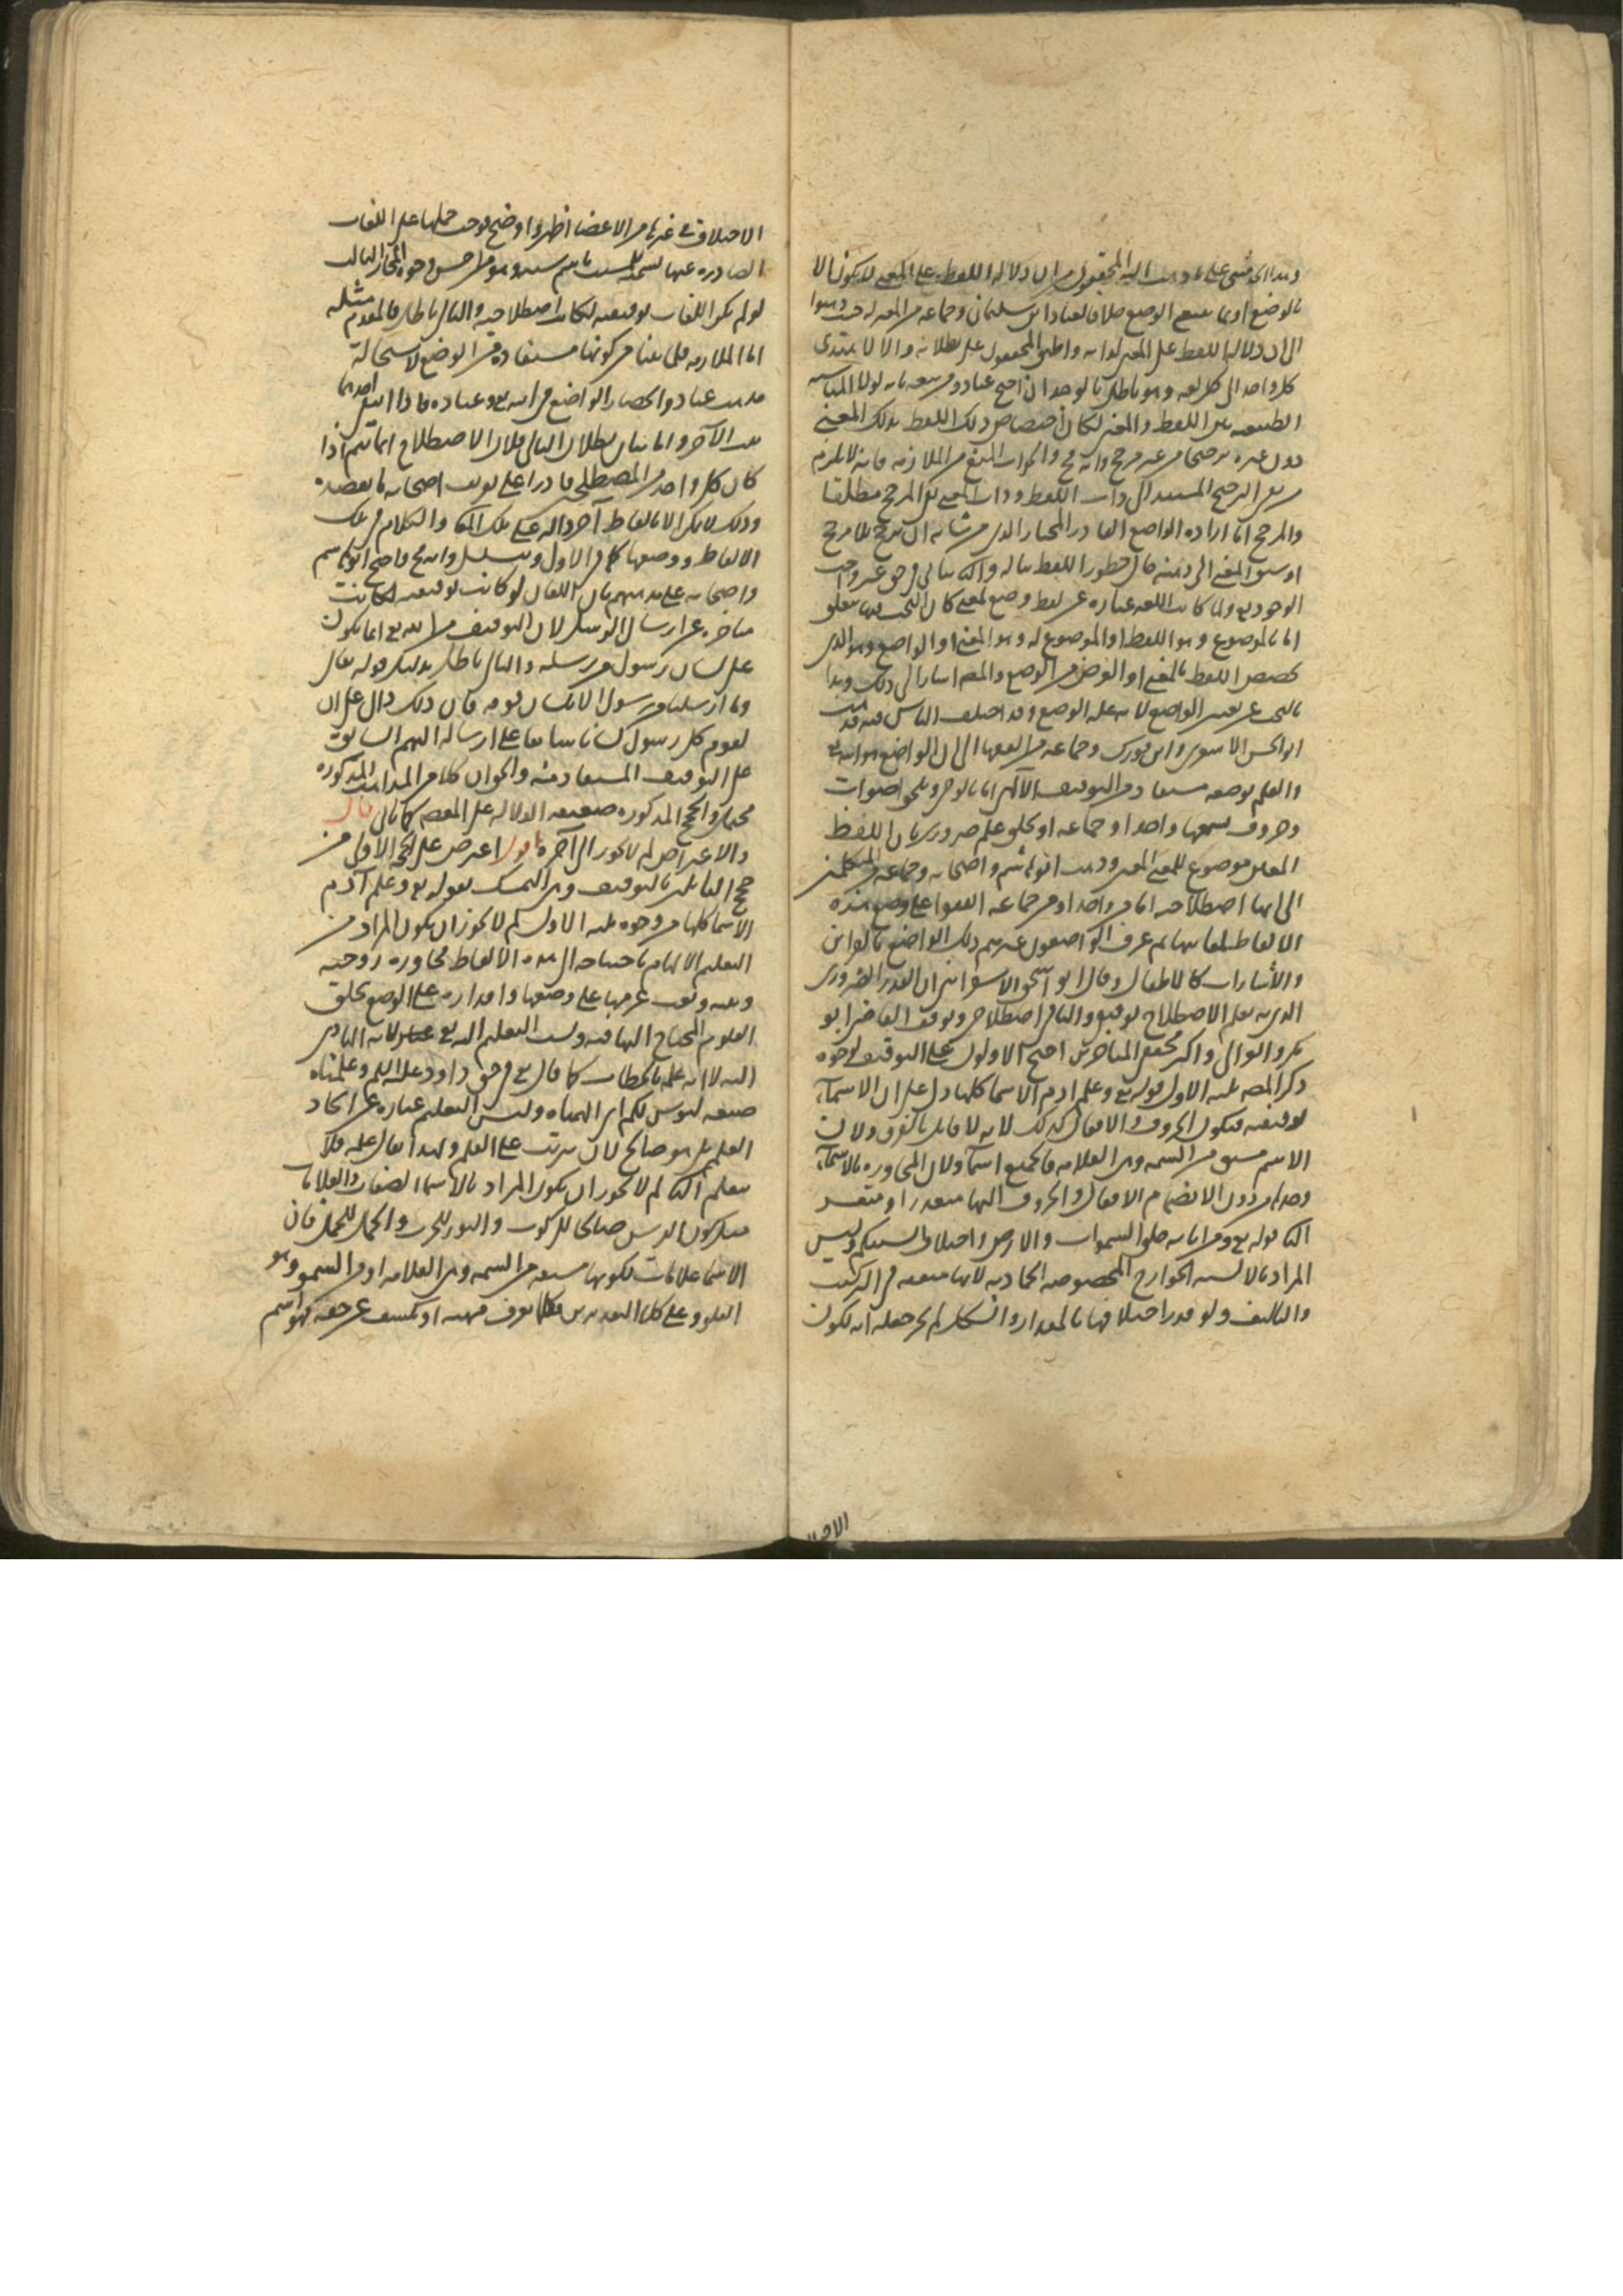 وهذا الذي مشى عليه ما ذهب اليه المحققون من ان دلالة اللفظ على المعنى لا يكون الا
بالوضع او بما يتبع الوضع خلافا لعباد ابن سليمان وجماعة من المعتزلة حيث ذهبوا
الى ان دلالة اللفظ على المعنى لذاته واطبق المحققون على بطلانه والا لاهتدى
كل واحد الى كل لغة وهو باطل بالوجدان احتج عباد ومن تبعه بانه لولا المناسبة
الطبيعية بين اللفظ والمعنى لكان اختصاص ذلك اللفظ بذلك المعنى
دون غيره ترجيحا من غير مرجح وانه مح والجواب المنع من الملازمة فانه لا يلزم
من نفي الترجيح المستند الى ذات اللفظ وذات المعنى نفي المرجح مطلقا
والمرجح اما ارادة الواضع القادر المختار الذي من شانه ان يرجح بلا مرجح
او سبق المعنى الى ذهنه حال خطور اللفظ بباله والثاني في حق غير واجب
الوجود تع ولما كانت اللغة عبارة عن لفظ وضع لمعنى كان البحث فيها يتعلق
اما بالموضوع وهو اللفظ او الموضوع له وهو المعنى او الواضع وهو الذي
يخصص اللفظ بالمعنى او الغرض من الوضع والمص اشار الى ذلك وبدا
بالبحث عن تعيين الواضع لانه علة الوضع وقد اختلف الناس فيه فذهب
ابو الحسن الاشعري وابن فورك وجماعة من الفقهاء الى ان الواضع هو الله تع
والعلم بوضعه مستفاد من التوقيف الالهي اما بالوحي او بخلق اصوات
وحروف يسمعها واحد او جماعة او بخلق علم ضروري بان اللفظ
المعين موضوع للمعنى المعين وذهب ابو هاشم واصحابه وجماعة من المتكلمين
الى انها اصطلاحية اما من واحد او من جماعة اتفقوا على وضع هذه
الالفاظ لمعانيها ثم عرف الواضعون غيرهم ذلك الواضع بالقراين
والاشارات كالاطفال وقال ابو اسحق الاسفرايني ان القدر الضروري
الذي به يعلم الاصطلاح توقيفي والباقي اصطلاحي وتوقف القاضي ابو
بكر والغزالي واكثر محققي المتاخرين احتج الاولون على التوقيف بوجوه
ذكر المص ثلثة الاول قوله تع وعلم ادم الاسما كلها دل على ان الاسماء
توقيفية فيكون الحروف والافعال كذلك لانه لا قايل بالفرق ولان
الاسم مشتق من السمة وهي العلامة فالجميع اسماء ولان المحاورة بالاسماء
وحدها من دون الانضمام الافعال والحروف اليها متعذر او متعسر
الثاني قوله تع ومن اياته خلق السموات والارض واختلاف السنتكم وليس
المراد بالالسنة الجوارح المخصوصة الحادثة لانها متفقة في التركيب
والتاليف ولو قدر اختلافها بالمقدار والشكل لم يحز جعله اية لكون
الاختلاف في غيرها من الاعضا اظهر واوضح فوجب حملها على اللغات
الصادرة عنها تسمية للمسبب باسم سببه وهو من احسن وجوه المجاز الثالث
لو لم يكن اللغات توقيفية لكانت اصطلاحية والتالي باطل فالمقدم مثله
اما الملازمة فلما بينا من كونها مستفادة من الوضع لاستحالة
مذهب عباد وانحصار الواضع في الله تع وعباده فاذا انتفى احدهما
ثبت الآخر واما بيان بطلان التالي فلان الاصطلاح انما يتم اذا
كان كل واحد من المصطلحين قادرا على تعريف اصحابه ما يقصده
وذلك لا يمكن الا بالفاظ اخر دالة على تلك المعاني والكلام في تلك
الالفاظ ووضعها كما في الاول ويتسلسل وانه مح واحتج ابو هاشم
واصحابه على مذهبهم بان اللغات لو كانت توقيفية لكانت
متاخرة عن ارسال الرسل لان التوقيف من الله تع انما يكون
على لسان رسول من رسله والتالي باطل بدليل قوله تعالى
وما ارسلنا من رسول الا بلسان قومه فان ذلك دال على ان
لقوم كل رسول لسانا سابقا على ارساله اليهم السابق
على التوقيف المستفاد منه والجواب كلا من المذاهب المذكورة
محتمل والحجج المذكورة ضعيفة الدلالة على المقصد كما ياتي قال
والاعتراض لم لا يجوز الى آخره اقول اعترض على الحجة الاولى من
حجج القايلين بالتوقيف وهي التمسك بقوله تع وعلم آدم
الاسما كلها من وجوه ثلثة الاول لم لا يجوز ان يكون المراد من
التعليم الالهام باحتياجه الى هذه الالفاظ لمحاورة زوجته
وبنيه وبعث عزمها على وضعها واقداره على الوضع بخلق
العلوم المحتاج اليها فيه ونسب التعليم اليه تع لانه الهادي
اليه لا انه علمه بالخطاب كما قال تع في حق داود عليه السلم وعلمناه
صنعة لبوس لكم اي الهمناه وليس التعليم عبارة عن ايجاد
العلم بل هو صالح لان يترتب عليه العلم ولهذا يقال علمته فلا
يتعلم الثاني لم لا يجوز ان يكون المراد بالاسما الصفات والعلامات
مثل كون الفرس صالحا للركوب والثور للحرث والجمل للحمل فان
الاسما علامات لكونها مشتقة من السمة وهي العلامة او من السمو وهو
العلو وعلى كلا التقديرين فكلما يعرف مهية او يكشف عن حقيقة فهو اسم